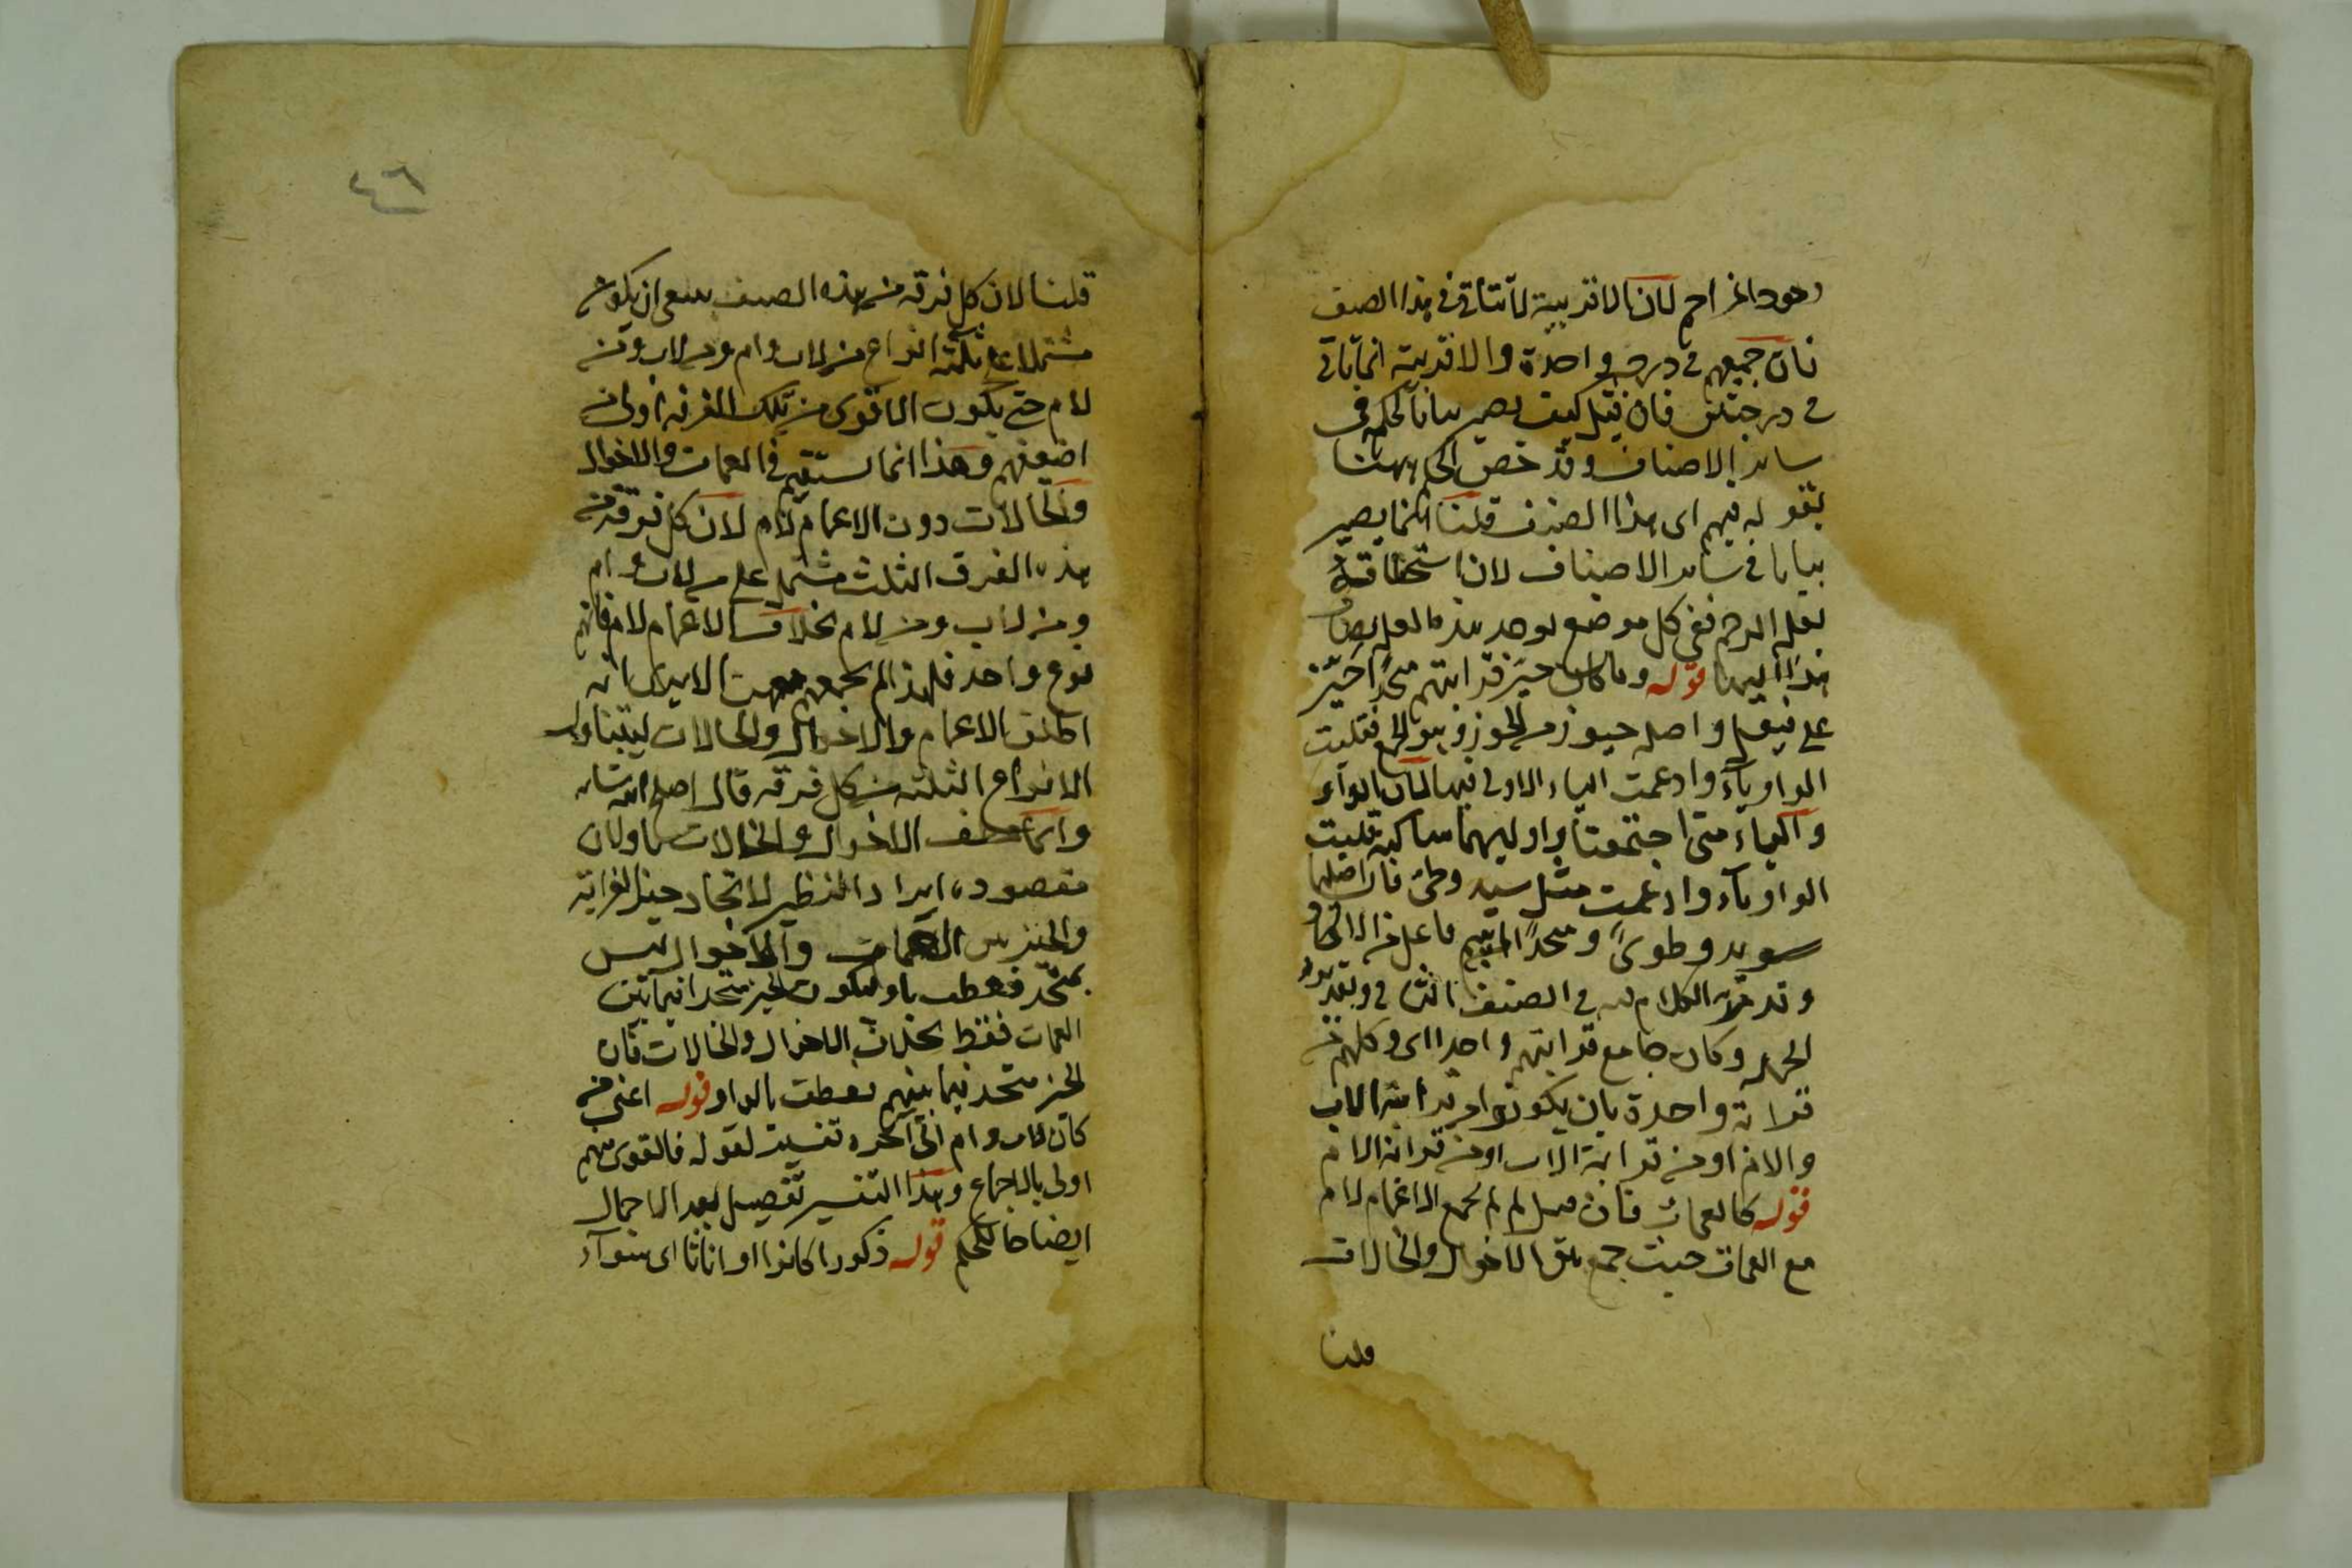 وجود المزاحم لان الاقربية لا تتأتى فى هذا الصنف
فان جميعهم فى درجة واحدة والاقربية انما تأتى
فى درجتين فان قيل كيف يصير بيانا لحكم فى
سائر الاصناف وقد خص الحكم ههنا
بقوله فيهم اى هذا الصنف قلنا انما يصير
بيانا فى سائر الاصناف لان استحقاقه
بعلة الرحم ففى كل موضع يوجد هذه العلة يضاف
هذا اليها قوله وما كان حيز قرابتهم متحدا حيز
على فيعل واصله حيوز من الحوز وهو الجمع فقلبت
الواو ياء وادغمت الياء الاولى فيها لان الواو
والياء متى اجتمعتا واوليهما ساكنة قلبت
الواو ياء وادغمت مثل سيد وطى فان اصلهما
سويد وطوى ومتحدا اسم فاعل من الاتحاد
وقد مر الكلام فى الصنف الثانى وتقدير
الجملة وكان جامع قرابتهم واحدا اى وكلهم من
قرابة واحدة بان يكونوا من قرابة الاب
والام او من قرابة الاب او من قرابة الام
قوله كالعمات فان قيل لم لم يجمع الاعمام لام
مع العمات حيث جمع بين الاخوال والخالات
قلنا
٤٦
قلنا لان كل فرقة من هذه الصنف ينبغى ان يكون
مشتملا على ثلثة انواع من لاب وام ومن لاب ومن
لام حتى يكون الاقوى من تلك الفرقة اولى من
اضعفهم وهذا انما يستقيم فى العمات والاخوال
والخالات دون الاعمام لام لان كل فرقة من
هذه الفرق الثلث مشتمل على من لاب وام
ومن لاب ومن لام بخلاف الاعمام لام فانهم
نوع واحد فلهذا لم يجمع معهن الا يرى انه
اطلق الاعمام والاخوال والخالات ليتناول
الانواع الثلثة من كل فرقة قال اصلح الله شانه
وانما عطف الاخوال والخالات باو لان
مقصوده ايراد النظير لاتحاد حيز القرابة
والحيز بين العمات والاخوال ليس
بمتحد فعطف باو ليكون الحيز متحدا فيما بين
العمات فقط بخلاف الاخوال والخالات فان
الحيز متحد فيما بينهم فعطف بالواو قوله اعنى من
كان لاب وام الى آخره تفسير لقوله فالقوى منهم
اولى بالاجماع وهذا التفسير تفصيل بعد الاجمال
ايضاحا للحكم قوله ذكورا كانوا او اناثا اى سواء